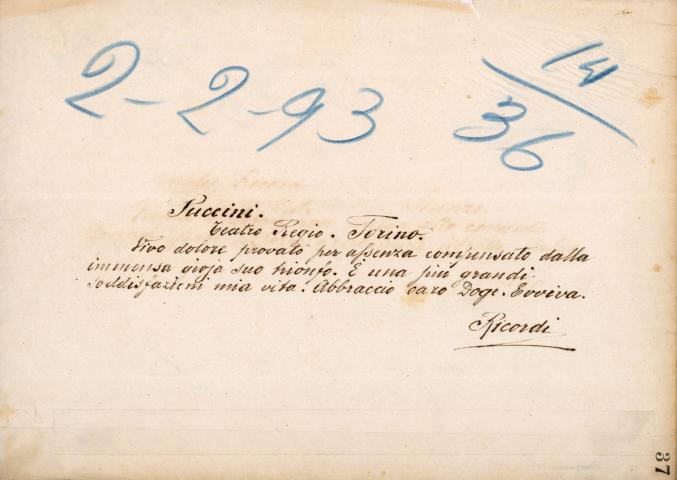 2-2-93
14/36
Puccini.
Teatro Regio. Torino.
Vivo dolore provato per assenza compensato dalla
immensa gioja suo trionfo. È una più grandi
soddisfazioni mia vita. Abbraccio caro Doge. Evviva.
Ricordi
37